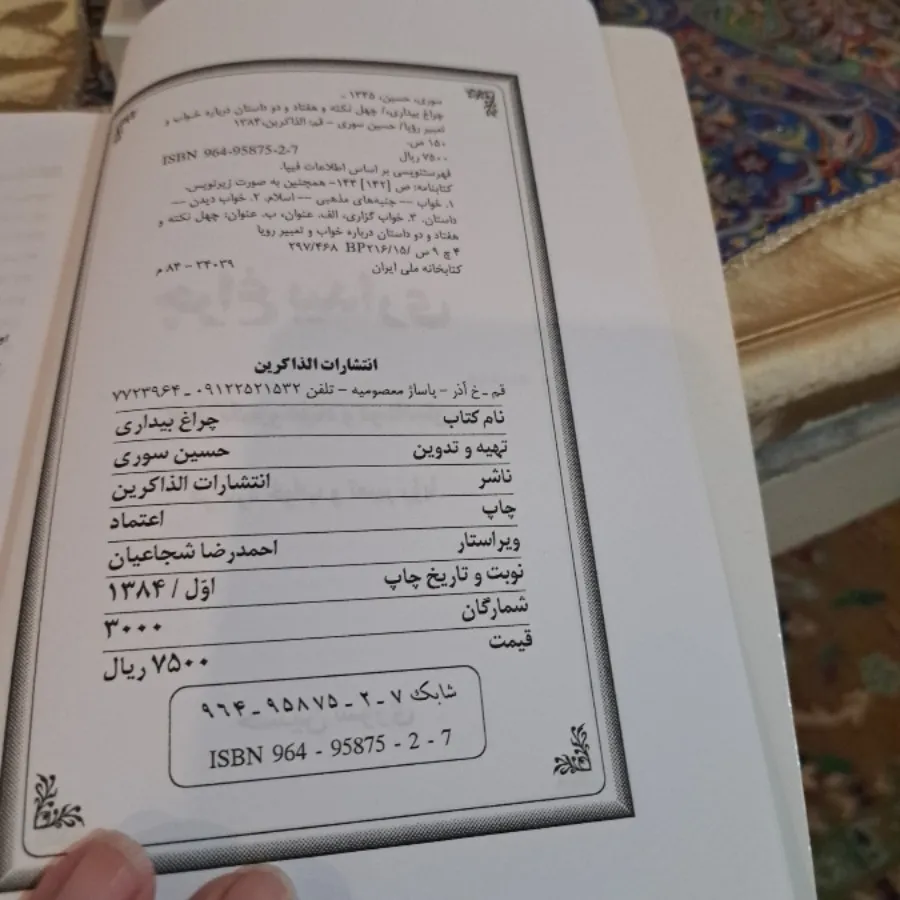 سوری، حسین، ۱۳۴۵ -
چراغ بیداری،/ چهل نکته و هفتاد و دو داستان درباره خواب و
تعبیر رویا/ حسین سوری - قم: الذاکرین،۱۳۸۴
۱۵۰ ص.
۷۵۰۰ ریال ISBN 964-95875-2-7
فهرستنویسی بر اساس اطلاعات فیپا.
کتابنامه: ص [۱۴۲] ۱۴۴- همچنین به صورت زیرنویس.
۱. خواب -- جنبه‌های مذهبی -- اسلام. ۲. خواب دیدن --
داستان. ۳. خواب گزاری، الف. عنوان، ب. عنوان: چهل نکته و
هفتاد و دو داستان درباره خواب و تعبیر رویا
۴ چ ۹ س /۲۱۶/۱۵ BP ۲۹۷/۴۶۸
کتابخانه ملی ایران ۲۴۰۳۹ - ۸۴ م
انتشارات الذاکرین
قم ـ خ آذر - پاساژ معصومیه - تلفن ۰۹۱۲۲۵۲۱۵۳۲ ـ ۷۷۲۳۹۶۴
نام کتاب چراغ بیداری
تهیه و تدوین حسین سوری
ناشر انتشارات الذاکرین
چاپ اعتماد
ویراستار احمدرضا شجاعیان
نوبت و تاریخ چاپ اوّل / ۱۳۸۴
شمارگان ۳۰۰۰
قیمت ۷۵۰۰ ریال
شابک ۷ ـ ۲ ـ ۹۵۸۷۵ ـ ۹۶۴
ISBN 964 - 95875 - 2 - 7